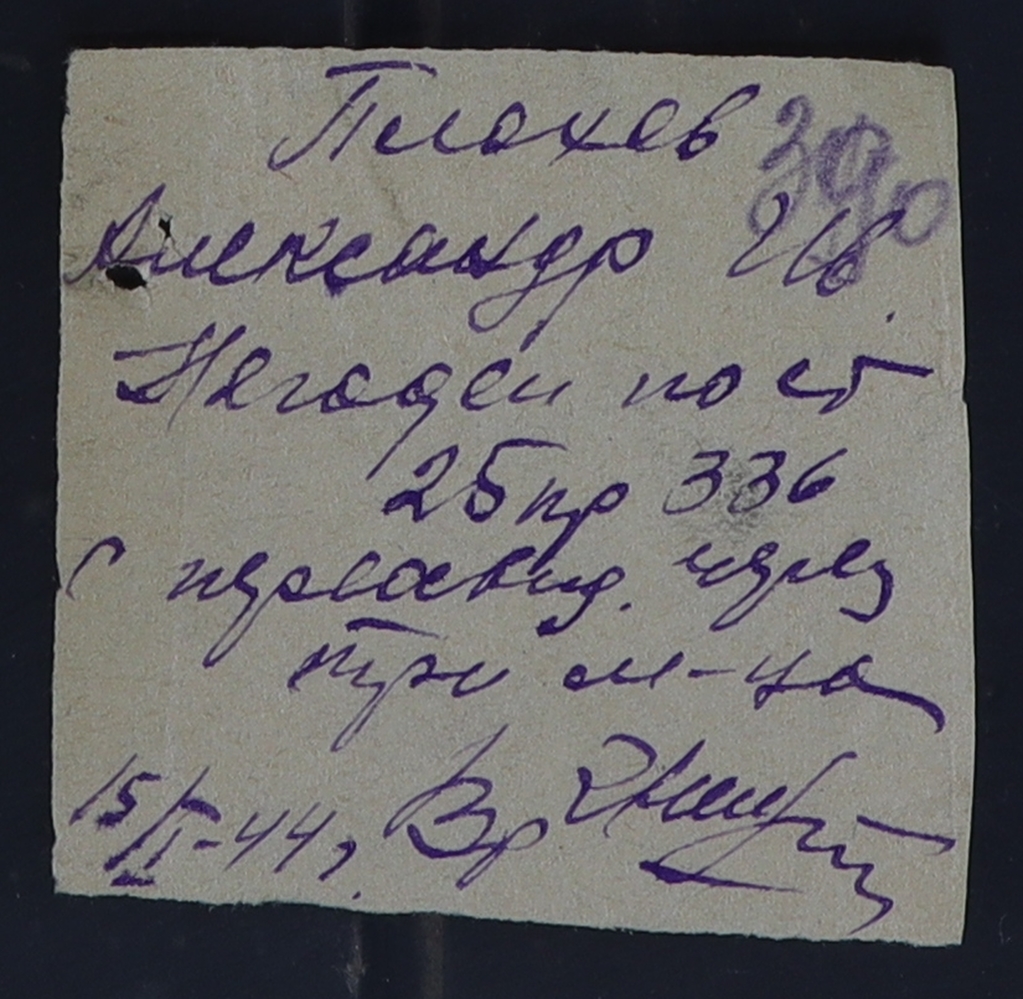 Плохов 390
Александр Ив.
Негоден по ст
25 пр 336
с переосвид. через
три м-ца
15/II-44г. Вр